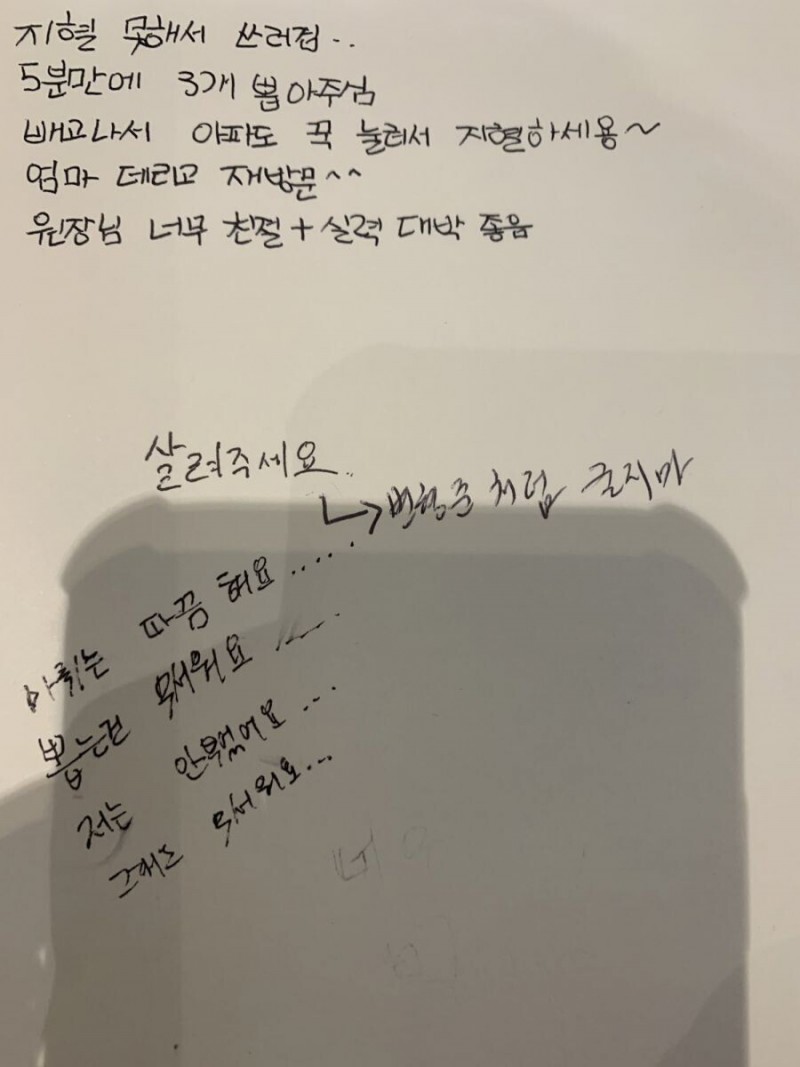 지혈 못해서 쓰러짐..
5분만에 3개 뽑아주심
빼고나서 아파도 꾹 눌러서 지혈하세용~
엄마 데리고 재방문^^
원장님 너무 친절+실력 대박 좋음
살려주세요..
↳ 변형준 처럼 울지마
마취는 따끔해요.....
뽑는건 무서워요....
저는 안울었어요...
그래도 무서워요...